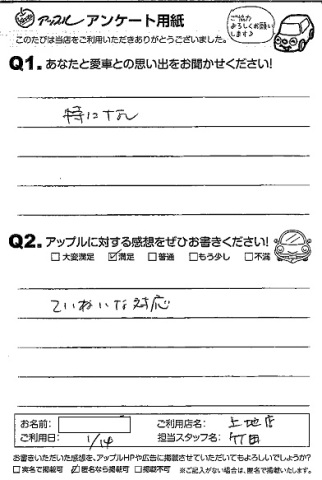 アップル アンケート用紙
ご協力
よろしくお願い
します♪
このたびは当店をご利用いただきありがとうございました。
Q1. あなたと愛車との思い出をお聞かせください!
特になし
Q2. アップルに対する感想をぜひお書きください!
□大変満足 ☑満足 □普通 □もう少し □不満
ていねいな対応
お名前:
ご利用店名: 上地店
ご利用日: 1/14
担当スタッフ名: 竹田
お書きいただいた感想を、アップルHPや広告に掲載させていただいてもよろしいでしょうか?
□実名で掲載可 ☑匿名なら掲載可 □掲載不可 ※ご記入がない場合は、匿名で掲載いたします。